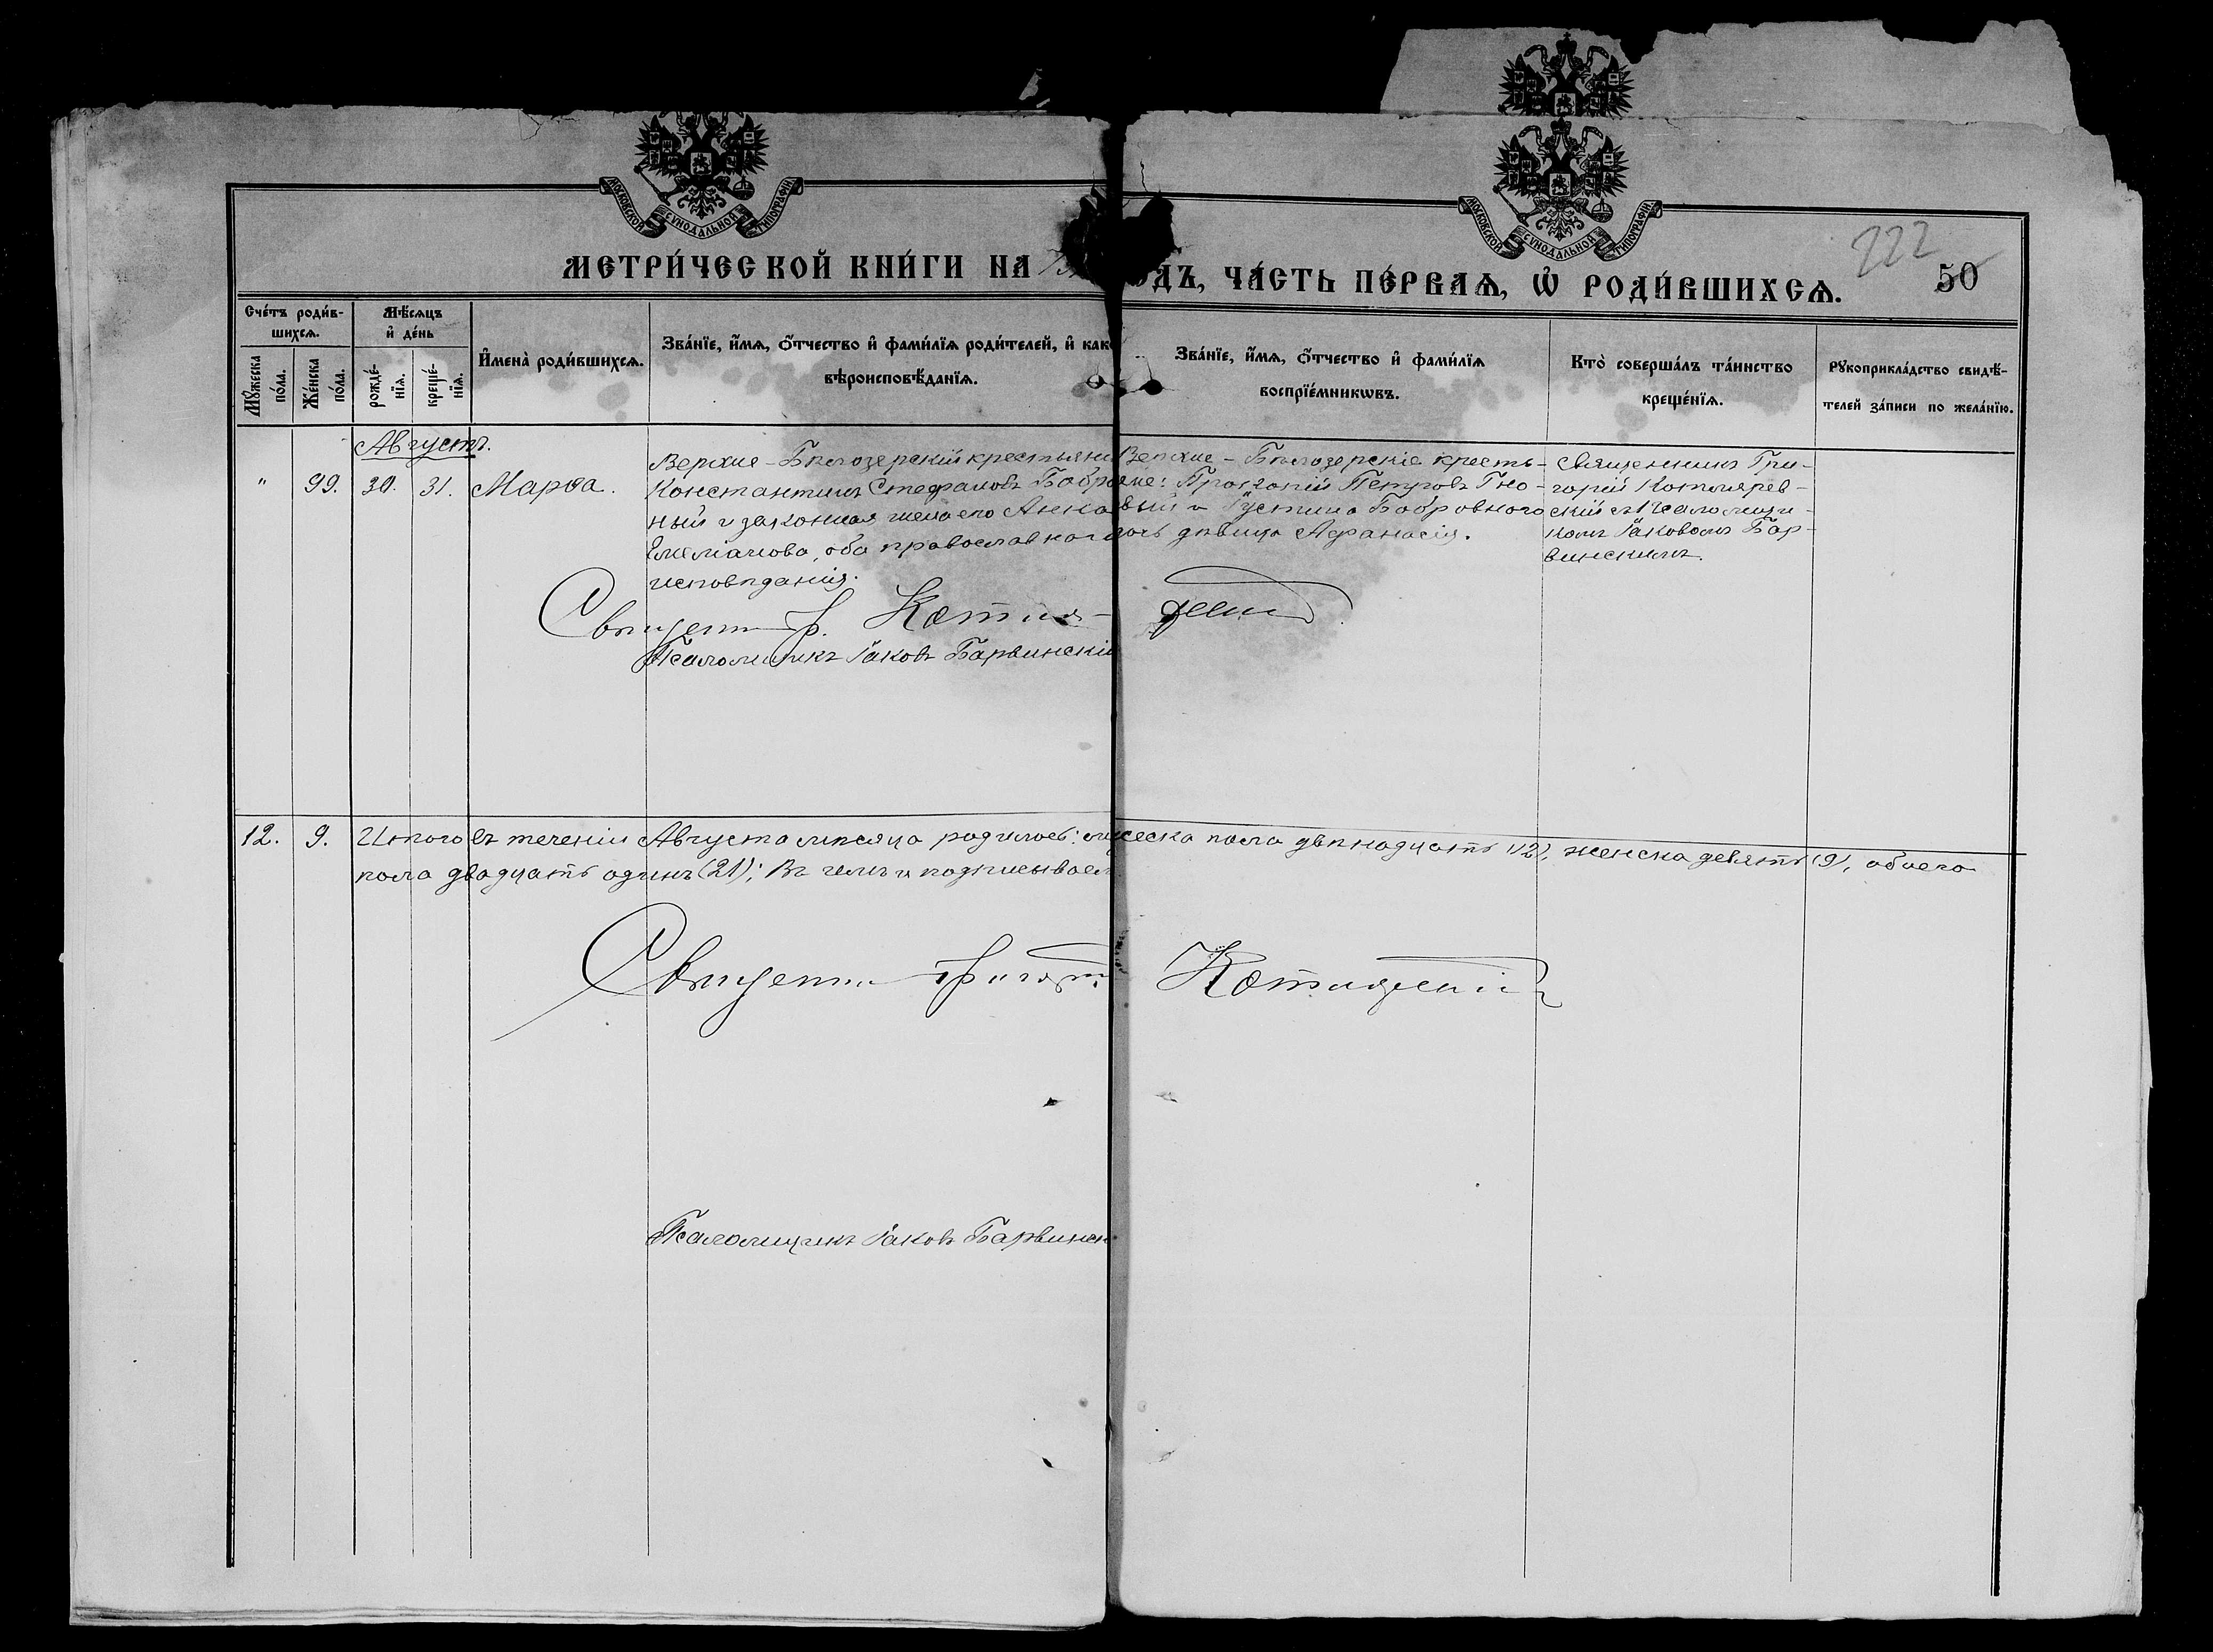 МОСКОВСКОЙ СѴНОДАЛЬНОЙ ТИПОГРАФІИ
МОСКОВСКОЙ СѴНОДАЛЬНОЙ ТИПОГРАФІИ
МЕТРИ́ЧЕСКОЙ КНИ́ГИ НА
ОДЪ, ЧА́СТЬ ПЕ́РВАѦ, Ѡ҆ РОДИ́ВШИХСѦ.
222
50
Сче́тъ роди́в-
шихсѧ.
Мꙋ́жеска
по́ла.
Же́нска
по́ла.
Мѣ́сѧцъ
и҆ де́нь
рожде́-
нїѧ.
креще́-
нїѧ.
И҆мена̀ роди́вшихсѧ.
Зва́нїе, и҆́мѧ, ѻ҆́тчество и҆ фами́лїѧ роди́телей, и҆ как
вѣроисповѣ́данїѧ.
Зва́нїе, и҆́мѧ, ѻ҆́тчество и҆ фами́лїѧ
воспрїе́мникѡвъ.
Кто̀ соверша́лъ та́инство
креще́нїѧ.
Рꙋкоприкла́дство свидѣ́-
телей за́писи по жела́нїю.
Августъ.
" 99. 30. 31. Марѳа.
Верхне-Бѣлозерскій крестьяни
Константинъ Стефановъ Бобро
ный и законная жена его Анна
Емеліанова, оба православнаго
исповѣданія.
Верхне-Бѣлозерскіе кресть-
яне: Прокопій Петровъ Гно-
вый и Іустина Бобровнаго
дочь дѣвица Афанасія.
Священникъ Гри-
горій Котлярев-
скій съ Псаломщи-
комъ Іаковомъ Бар-
винскимъ.
Священ. Гр. Котля-
Псаломщикъ Іаковъ Барвинскій
12. 9. Итого въ теченіи Августа мѣсяца родилось: мужеска пола двѣнадцать (12), женска девять (9), обоего
пола двадцать одинъ (21); Въ чемъ и подписываем
Священник Григор. Котляревскій
Псаломщикъ Іаковъ Барвинск